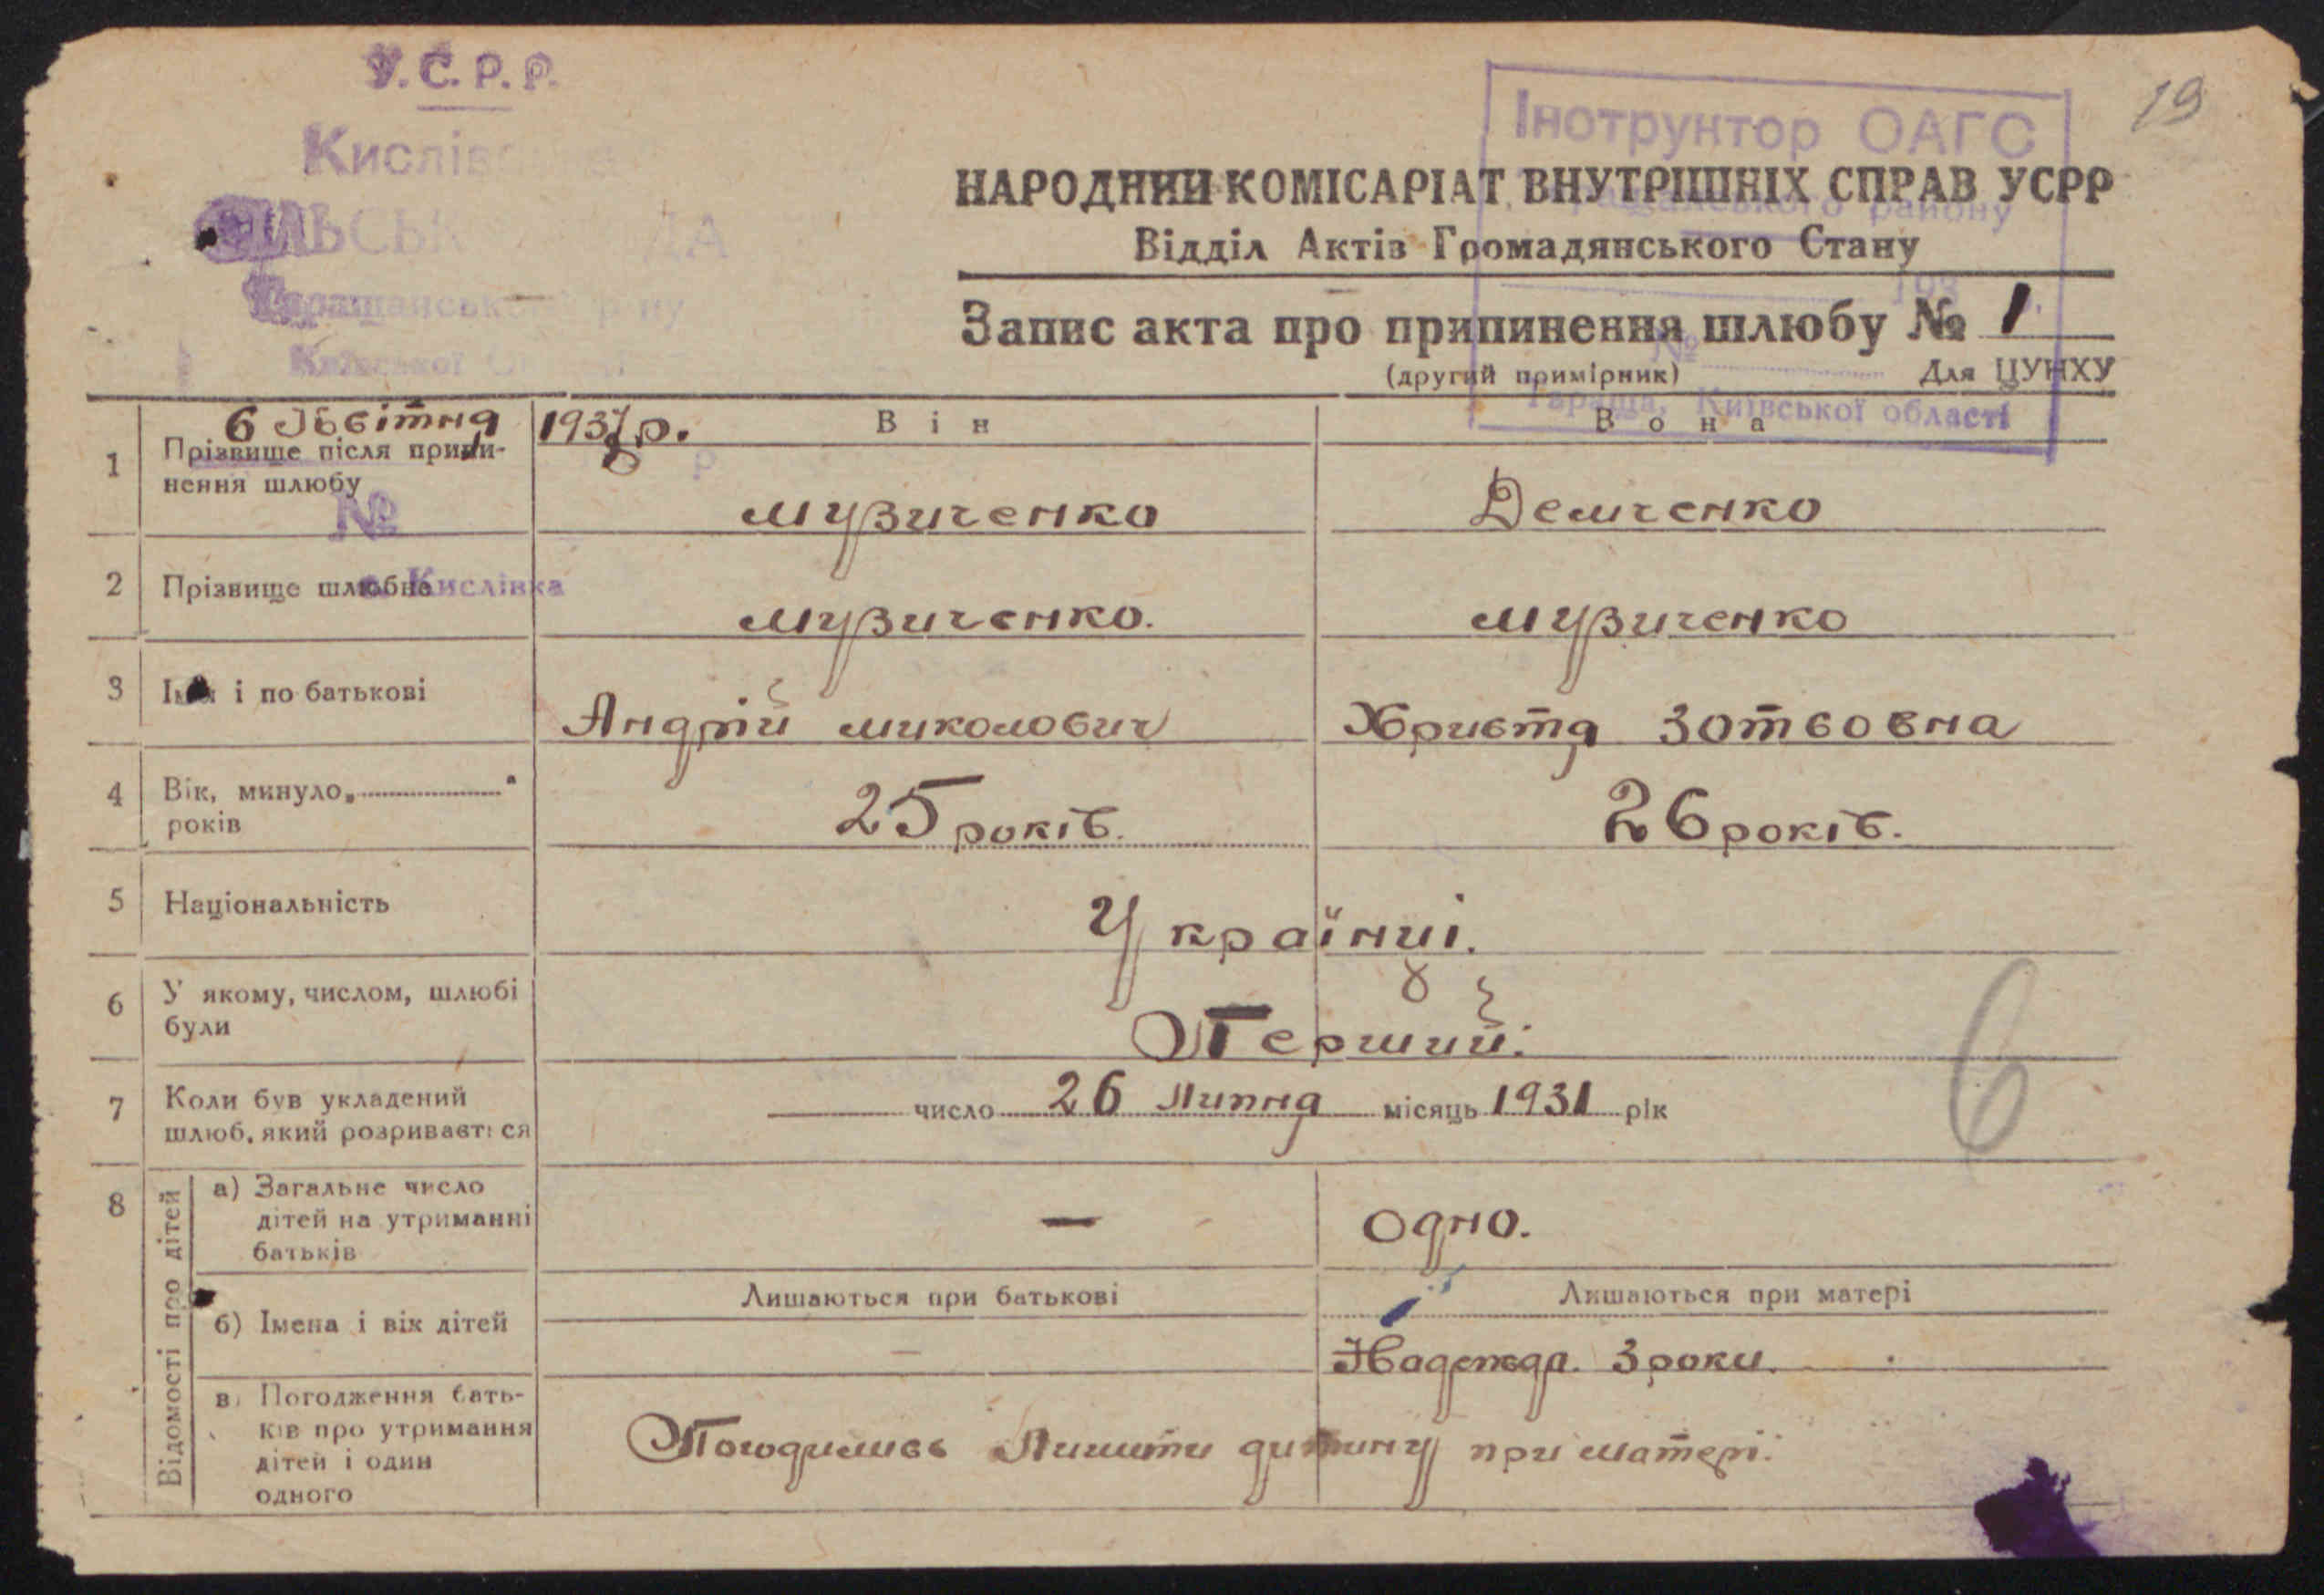 У.С.Р.Р.
19
Інструктор ОАГС
Кислівська
НАРОДНИЙ КОМІСАРІАТ ВНУТРІШНІХ СПРАВ УСРР
району
СІЛЬСЬКА РАДА
Відділ Актів Громадянського Стану
Таращанського р-ну
193
Запис акта про припинення шлюбу № 1
Київської
№
(другий примірник) Для ЦУНХУ
Тараща, Київської області
6 Квітня 1937 р.
Він Вона
1 Прізвище після припи-
нення шлюбу
Музиченко Демченко
№
2 Прізвище шлюбне
с. Кислівка
Музиченко. Музиченко
3 Імя і по батькові
Андрій Миколович Христя Зотвовна
4 Вік, минуло „ "
років
25 років. 26 років.
5 Національність
Українці.
6 У якому, числом, шлюбі
були
Перший.
7 Коли був укладений
шлюб, який розривається
число 26 Липня місяць 1931 рік
6
8 Відомості про дітей
а) Загальне число
дітей на утриманні
батьків
— Одно.
Лишаються при батькові Лишаються при матері
б) Імена і вік дітей
— Надежда. 3 роки.
в) Погодження бать-
ків про утримання
дітей і один
одного
Погодились Лишити дитину при матері.